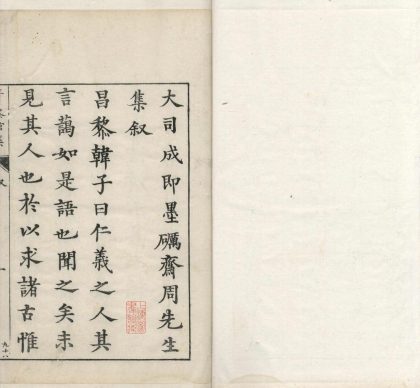 大司成即墨礪齋周先生
集叙
昌黎韓子曰仁義之人其
言藹如是語也聞之矣未
見其人也於以求諸古惟